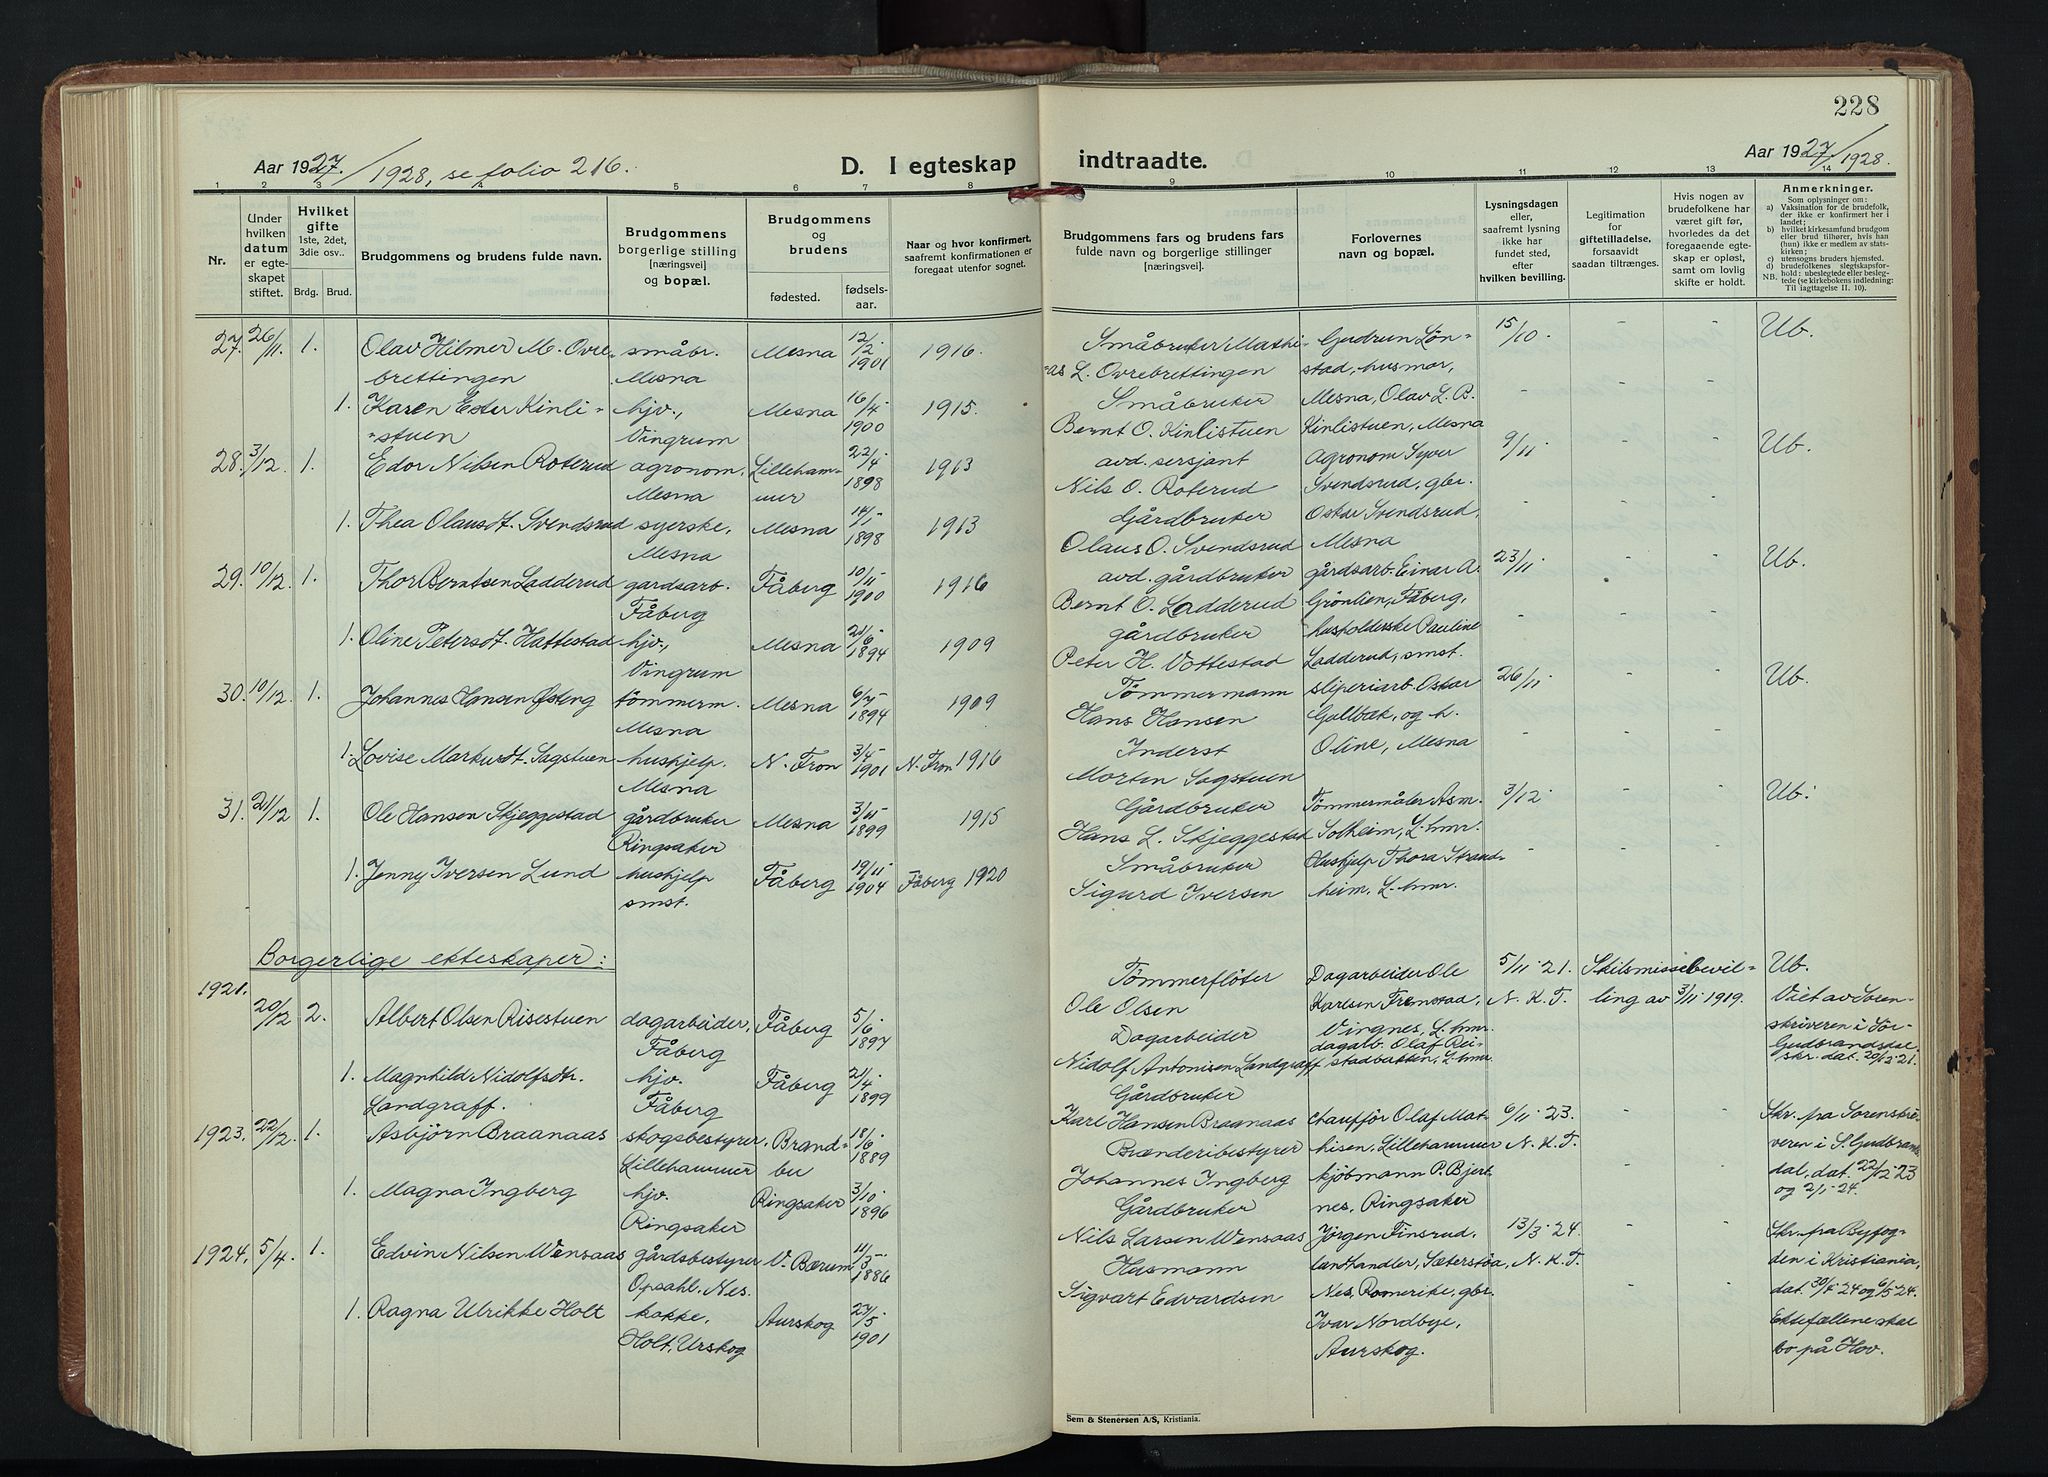 228
Aar 1927/1928, se folio 216.
D. I egteskap indtraadte.
Aar 1927/1928.
1 2 3 4 5 6 7 8 9 10 11 12 13 14
Nr.
Under hvilken datum er egteskapet stiftet.
Hvilket gifte 1ste, 2det, 3die osv..
Brdg. Brud.
Brudgommens og brudens fulde navn.
Brudgommens borgerlige stilling [næringsvei] og bopæl.
Brudgommens og brudens
fødested. fødselsaar.
Naar og hvor konfirmert, saafremt konfirmationen er foregaat utenfor sognet.
Brudgommens fars og brudens fars fulde navn og borgerlige stillinger [næringsvei].
Forlovernes navn og bopæl.
Lysningsdagen eller, saafremt lysning ikke har fundet sted, efter hvilken bevilling.
Legitimation for giftetilladelse, forsaavidt saadan tiltrænges.
Hvis nogen av brudefolkene har været gift før, hvorledes da det foregaaende egteskap er opløst, samt om lovlig skifte er holdt.
Anmerkninger.
Som oplysninger om:
a) Vaksination for de brudefolk, der ikke er konfirmert her i landet;
b) hvilket kirkesamfund brudgom eller brud tilhører, hvis han (hun) ikke er medlem av statskirken;
c) utensogns bruders hjemsted.
d) brudefolkenes slegtskapsforhold: ubeslegtede eller beslegtede (se kirkebokens indledning: NB. Til iagttagelse II. 10).
27. 26/11. 1. Olav Hilmer M. Øvre- småbr. Mesna 12/2- 1901 1916. Småbruker Mathi- Gudrun Løn- 15/10. - - Ub.
brettingen Mesna =as L. Øvrebrettingen stad, husmor,
1. Karen Ester Kinli- hjv., Mesna 16/4- 1900 1915. Småbruker Mesna, Olav L. B. - -
=stuen Vingrum Bernt O. Kinlistuen Kinlistuen, Mesna
28. 3/12. 1. Edor Nilsen Roterud agronom, Lilleham- 22/4- 1898 1913 avd. sersjant Agronom Syver 9/11- - - Ub.
Mesna mer Nils O. Roterud Svendsrud, gbr.
1. Thea Olausdt. Svendsrud syerske, Mesna 14/1- 1898 1913 Gårdbruker Oskar Svendsrud, - -
Mesna Olaus O. Svendsrud Mesna
29. 10/12. 1. Thor Berntsen Ladderud gardsarb. Fåberg 10/11- 1900 1916 avd. gårdbruker gårdsarb. Einar A. 23/11 - - Ub.
Fåberg Bernt O. Ladderud Grönlien, Fåberg,
1. Oline Petersdt. Hattestad hjv., Mesna 21/6- 1894 1909 gårdbruker husholderske Pauline - -
Vingrum Peter H. Vottestad Ladderud, smst.
30. 10/12. 1. Johannes Hansen Østeng tømmerm. Mesna 6/7- 1894 1909 Tømmermann sliperiarb. Oskar 26/11- - - Ub.
Mesna Hans Hansen Gullbæk, og h.
1. Lovise Markusdt. Sagstuen hushjelp. N. Fron 3/4- 1901 N. Fron 1916 Inderst Oline, Mesna - -
Mesna Morten Sagstuen
31. 21/12 1. Ole Hansen Skjeggestad gårdbruker Mesna 3/11- 1899 1915 Gårdbruker Tømmermåler Asm. 3/12- - - Ub.
Ringsaker Hans L. Skjeggestad Solheim, L.hmr.
1. Jenny Iversen Lund hushjelp Fåberg 19/11- 1904 Fåberg 1920 Småbruker Hushjelp Thora Strand- - -
smst. Sigurd Iversen heim, L.hmr.
Borgerlige ekteskaper:
1921. 20/12 2. Albert Olsen Risestuen dagarbeider, Fåberg 5/6- 1897 Tømmerfløter Dagarbeider Ole 5/11-21. Skilsmissebevil- Ub.
Fåberg Ole Olsen Karlsen Fremstad, N. K. T. ling av 3/11 1919. Viet av Soren-
Vingnes, L.hmr. skriveren i Sør-
1. Magnhild Nidolfsdtr. hjv. Fåberg 21/4- 1899 Dagarbeider dagarb. Olaf Rei- Gudbrandsdal,
Landgraff. Fåberg Nidolf Antonisen Landgraff stadbakken, L.hmr. skr. dat. 20/12-21.
1923. 22/12. 1. Asbjørn Braanaas skogsbestyrer, Brand- 18/6- 1889 Gårdbruker Chauffør Olaf Mat- 6/11-23. - - Skr. fra Sorenskri-
Lillehammer bu Karl Hansen Braanaas hisen, Lillehammer N. K. T. veren i S. Gudbrans-
1. Magna Ingberg hjv. Ringsaker 3/10- 1896 Brænderibestyrer kjøbmann P. Bjert- - - dal, dat. 22/12-23
Ringsaker Johannes Ingberg nes, Ringsaker og 2/1-24.
1924. 5/4. 1. Edvin Nilsen Wensaas gårdsbestyrer V. Bærum 11/3- 1886 Gårdbruker Jørgen Finsrud, 13/3-24. - - Skr. fra Byfog-
Opsahl, Nes. Nils Larsen Wensaas landhandler, Sæterstøa, N. K. T. den i Kristiania,
1. Ragna Ulrikke Holt kokke, Aurskog 27/5- 1901 Husmann Nes, Romerike, gbr. - - dat. 30/4-24 og 6/5-24.
Holt, Urskog Sigvart Edvardsen Ivar Nordbye, Ektefællene skal
Aurskog. bo på Hov.
Sem & Stenersen A/S, Kristiania.